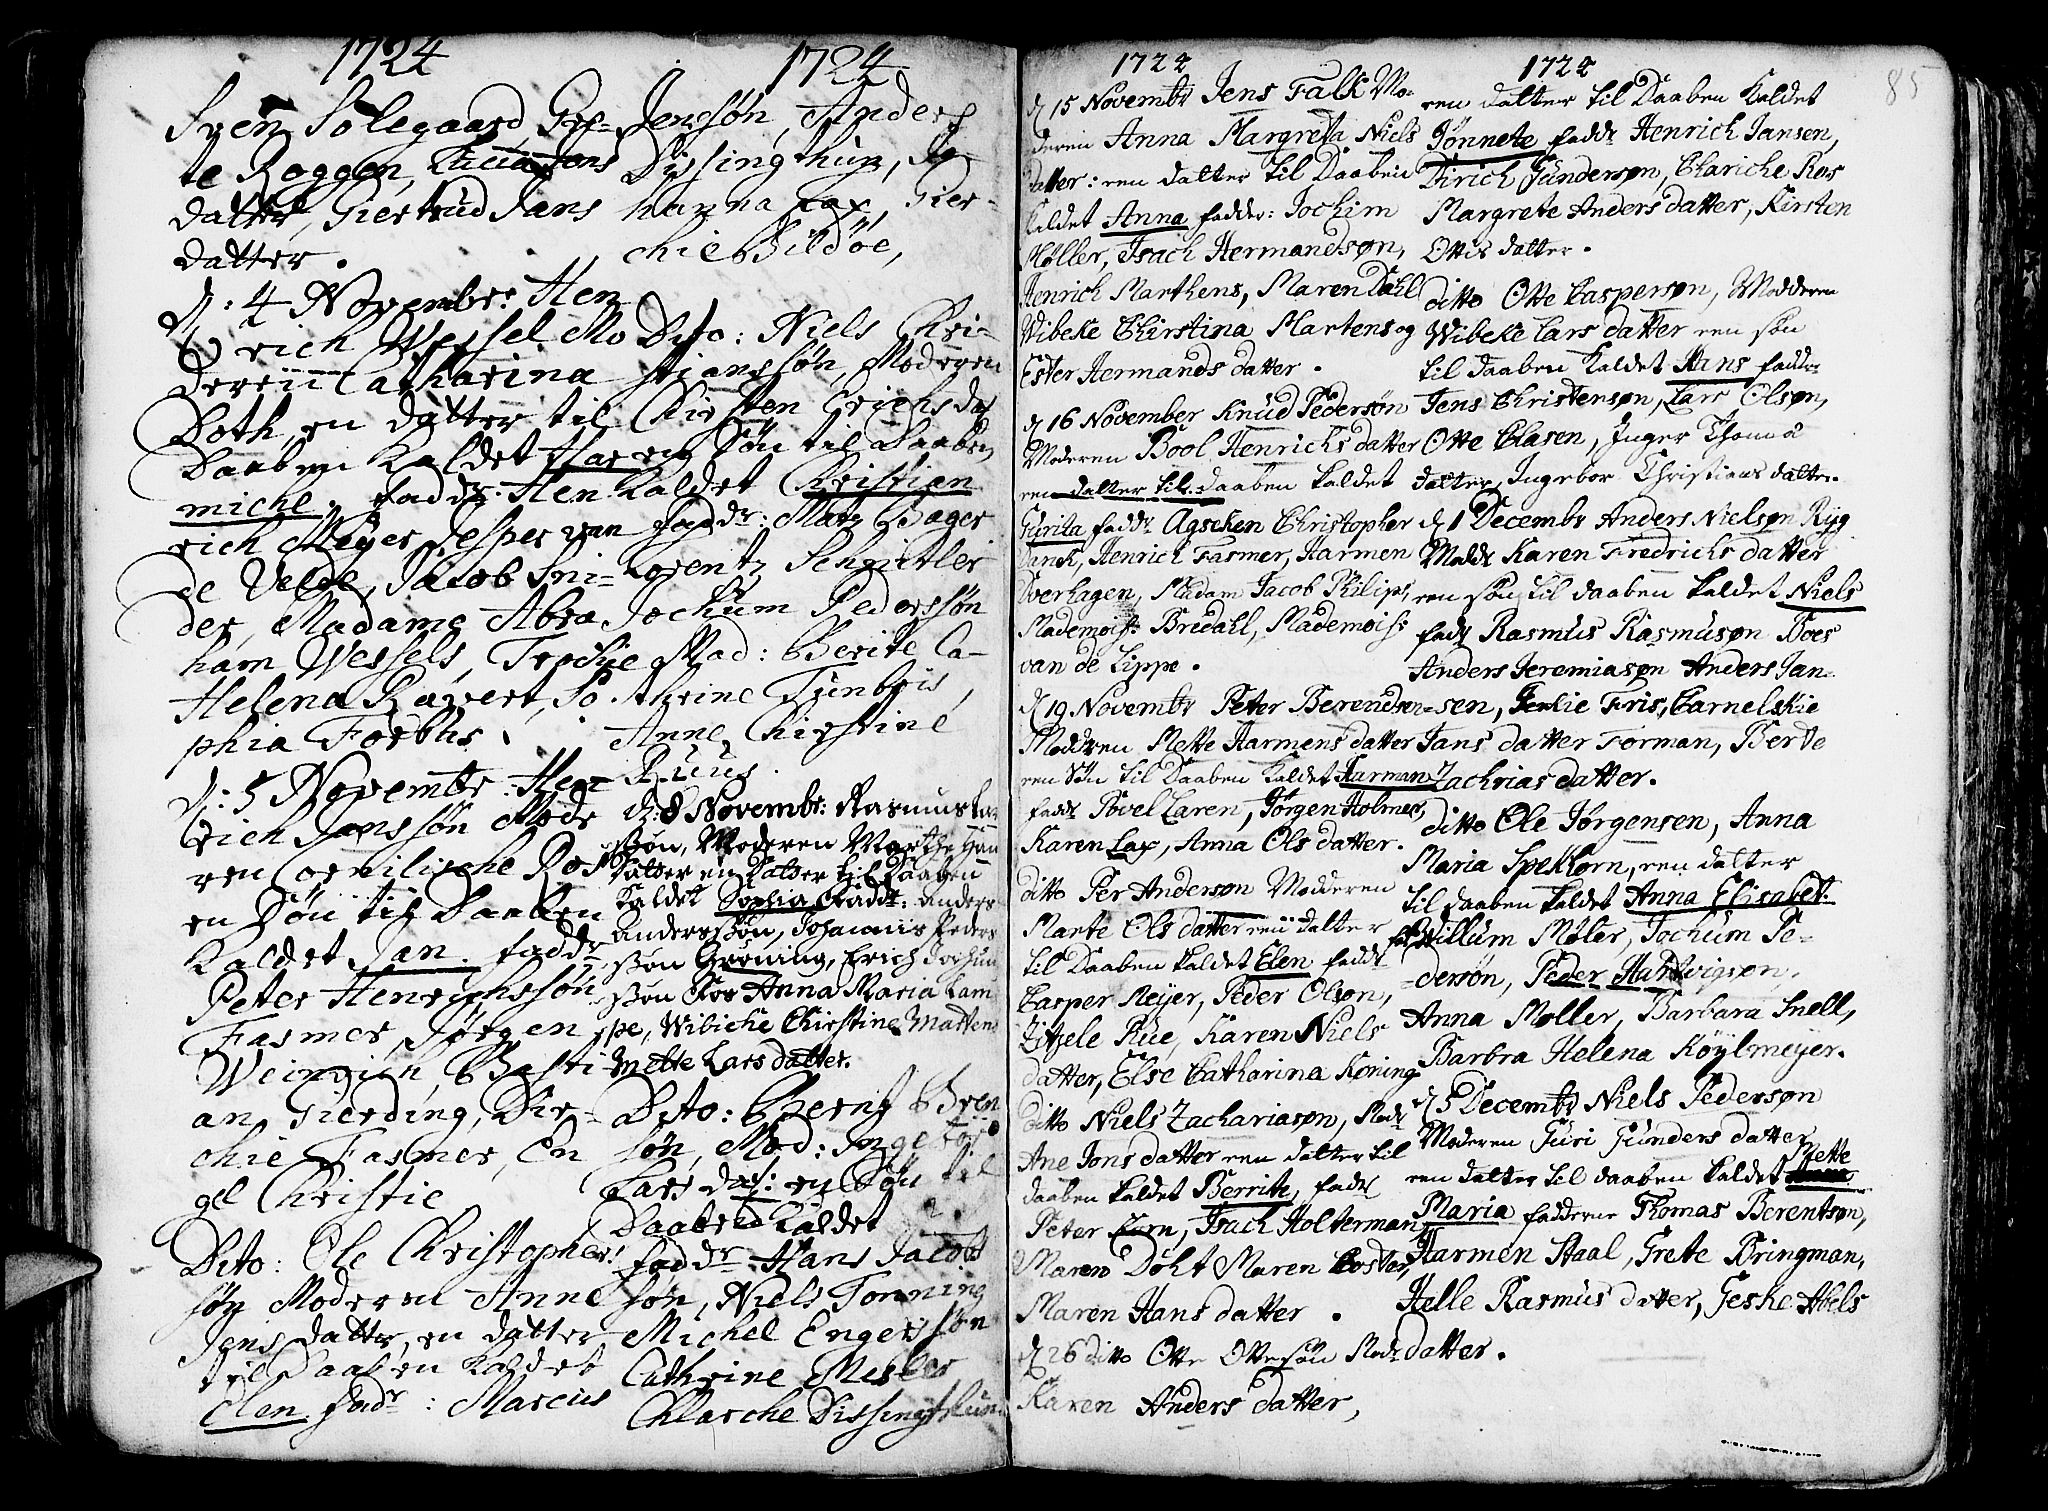 1724
Sven Solegaard, Gre-
te Roggen, Lucia Jons
datter, Giertrud Jans
datter.
d: 4 Novembr: Hen
rich Wessel Mo
deren Catharina
Both, en datter til
Daaben Kaldet Har
miche. faddr: Hen
rich Meyer Jesper van
de Velde, Jacob Sni-
der, Madame Abra
ham Wessels,
Helena Ravert, So
phia Forbhs.
d: 5 Novembr: Hen
rich Janssøn Mode
ren Cornilische Ros
en Søn til Daaben
Kaldet Jan. faddr
Peter Henrichssøn
Fasmer, Jørgen
Weinrich, Basti
an Gierding, Dir-
chie Fasmer, En
gel Christie
Dito: Ole Christopher
søn Moderen Anne
Jens datter, en datter
til Daaben Kaldet
Elen fadr: Marcus
1724
Jensøn, Anders
Dissingthun, Jo-
hanna Lax, Gier-
chie Bildøe,
Dito: Niels Chri-
stianssøn, Moderen
Chirsten Erichs dat
en Søn til Daaben
Kaldet Christian
faddr: Matz Bager
Lorentz Schjøtler
Jochum Pederssøn
Mad: Berite Ca-
thrine Tønberis,
Anne Chirstine
Ruus.
d: 8 Novembr: Rasmus
søn, Moderen Marthe
datter en datter til Daaben
Kaldet Sophia, Fadd: Anders
Anderssøn, Johannis Peders
søn Grøning, Erich Jochum
søn Ros Anna Maria Lam
pe, Wibiche Chirstine Martens
Mette Lars datter.
Dito: Bernt Bren
søn, Mod: Ingebor
Lars dat: en Søn til
Daaben Kaldet
faddr Hans Jacob
søn, Niels Tonning
Michel Engelssøn
Cathrine Mesler
Chlarche Dissingthun
1724
d 15 Novembr Jens Falk Mo-
deren Anna Margreta Niels
datter: ren datter til Daaben
kaldet Anna fadder: Jochim
Møller, Isach Hermandsøn,
Henrich Marthens, Maren Dahl
Wibeke Christina Martens og
Ester Hermands datter.
d 16 November Knud Pedersøn
Moderen Bool Henrichs datter
ren datter til daaben kaldet
Gurita, faddr Agschen Christopher
Danck, Henrich Fasmer, Harmen
Overhagen, Madam Jacob Philips,
Mademoiss: Bredahl, Mademoiss:
van de Lippe.
d 19 Novembr Peter Berendsen
Modren Mette Harmens datter
ren Søn til Daaben kaldet Harman
faddr Povel Laren, Jørgen Holmer,
Karen Lax, Anna Ols datter.
ditto Per Andersøn Modderen
Marte Ols datter en datter
til Daaben kaldet Elen faddr
Casper Meyer, Peder Olsøn,
Zitzele Rue, Karen Niels
datter, Else Catharina Køning
ditto Niels Zachariasøn, Modr
Ane Jons datter ren datter til
daaben kaldet Berrite, faddr
Peter Corn, Isach Holterman,
Maren Doht Maren Coster,
Maren Hans datter.
d 26 ditto Otte Ottesøn Modr
Karen Anders datter,
1724
85
ren datter til Daaben Kaldet
Jønnete faddr Henrich Jansen,
Dirich Gundersøn, Clariche Ros
Margrete Anders datter, Kirsten
Ottis datter.
ditto Otte Caspersøn, Modderen
Wibeke Lars datter ren søn
til daaben kaldet Hans fadder
Jens Christensøn, Lars Olsøn,
Otte Clasen, Inger Thomæ
datter, Ingebor Christians datter.
d 1 Decembr Anders Nielsøn Ryg
Modr Karen Fredrichs datter
ren søn til daaben kaldet Niels
faddr Rasmus Rasmusøn Boes
Anders Jeremiasøn Anders Jan-
sen, Fris, Carnelskie
Jans datter Forman, Berte
Zachrias datter.
ditto Ole Jørgensen, Anna
Maria Spekhorn, ren datter
til daaben kaldet Anna Elisabet.
fadr Willum Møler, Jochum Pe-
dersøn, Peder Hartvigsøn,
Anna Møller, Barbara Snell,
Barbra Helena Køylmeyer.
d 5 Decembr Niels Pedersøn
Moderen Guri Gunders datter
ren datter til daaben kaldet Mette
Maria fadderne Thomas Berentsøn,
Harmen Staal, Grete Bringman,
Helle Rasmus datter, Geske Abels
datter.